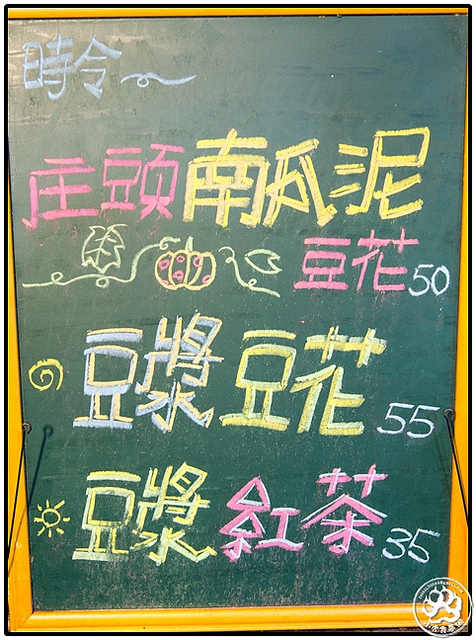 時令
庄頭南瓜泥
豆花50
豆漿豆花55
豆漿紅茶35